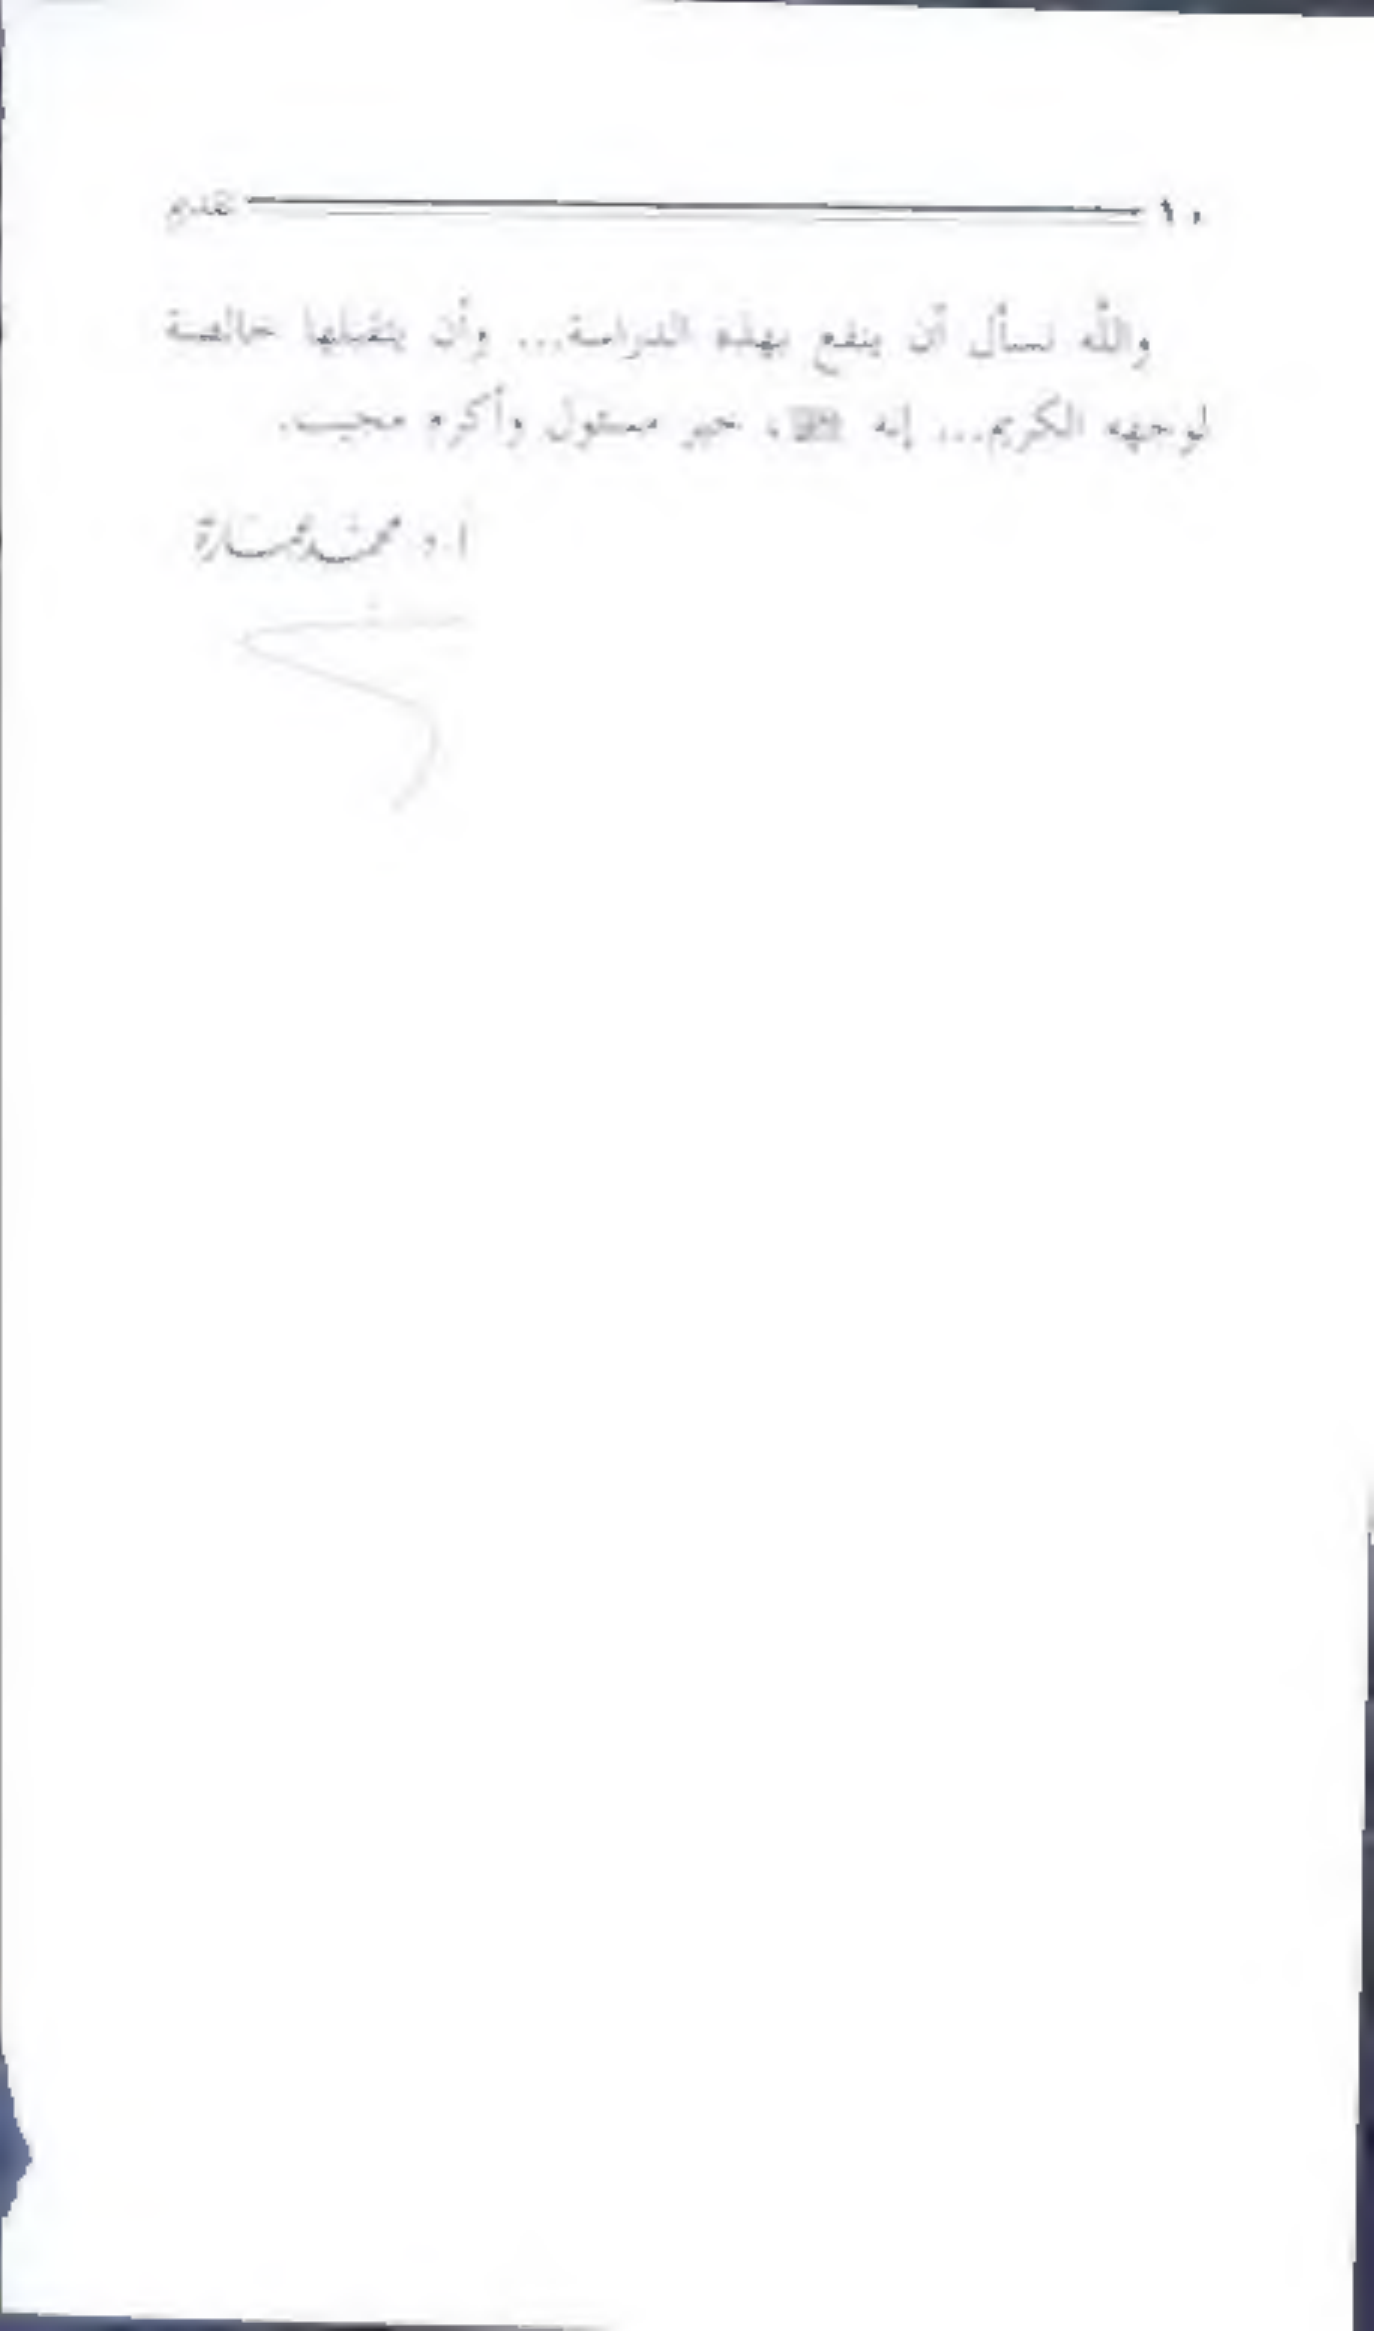 ١٠ تقديم
والله نسأل أن ينفع بهذه الدراسة... وأن يتقبلها خالصة
لوجهه الكريم... إنه ، خير مسئول وأكرم مجيب.
أ.د محمد عمارة